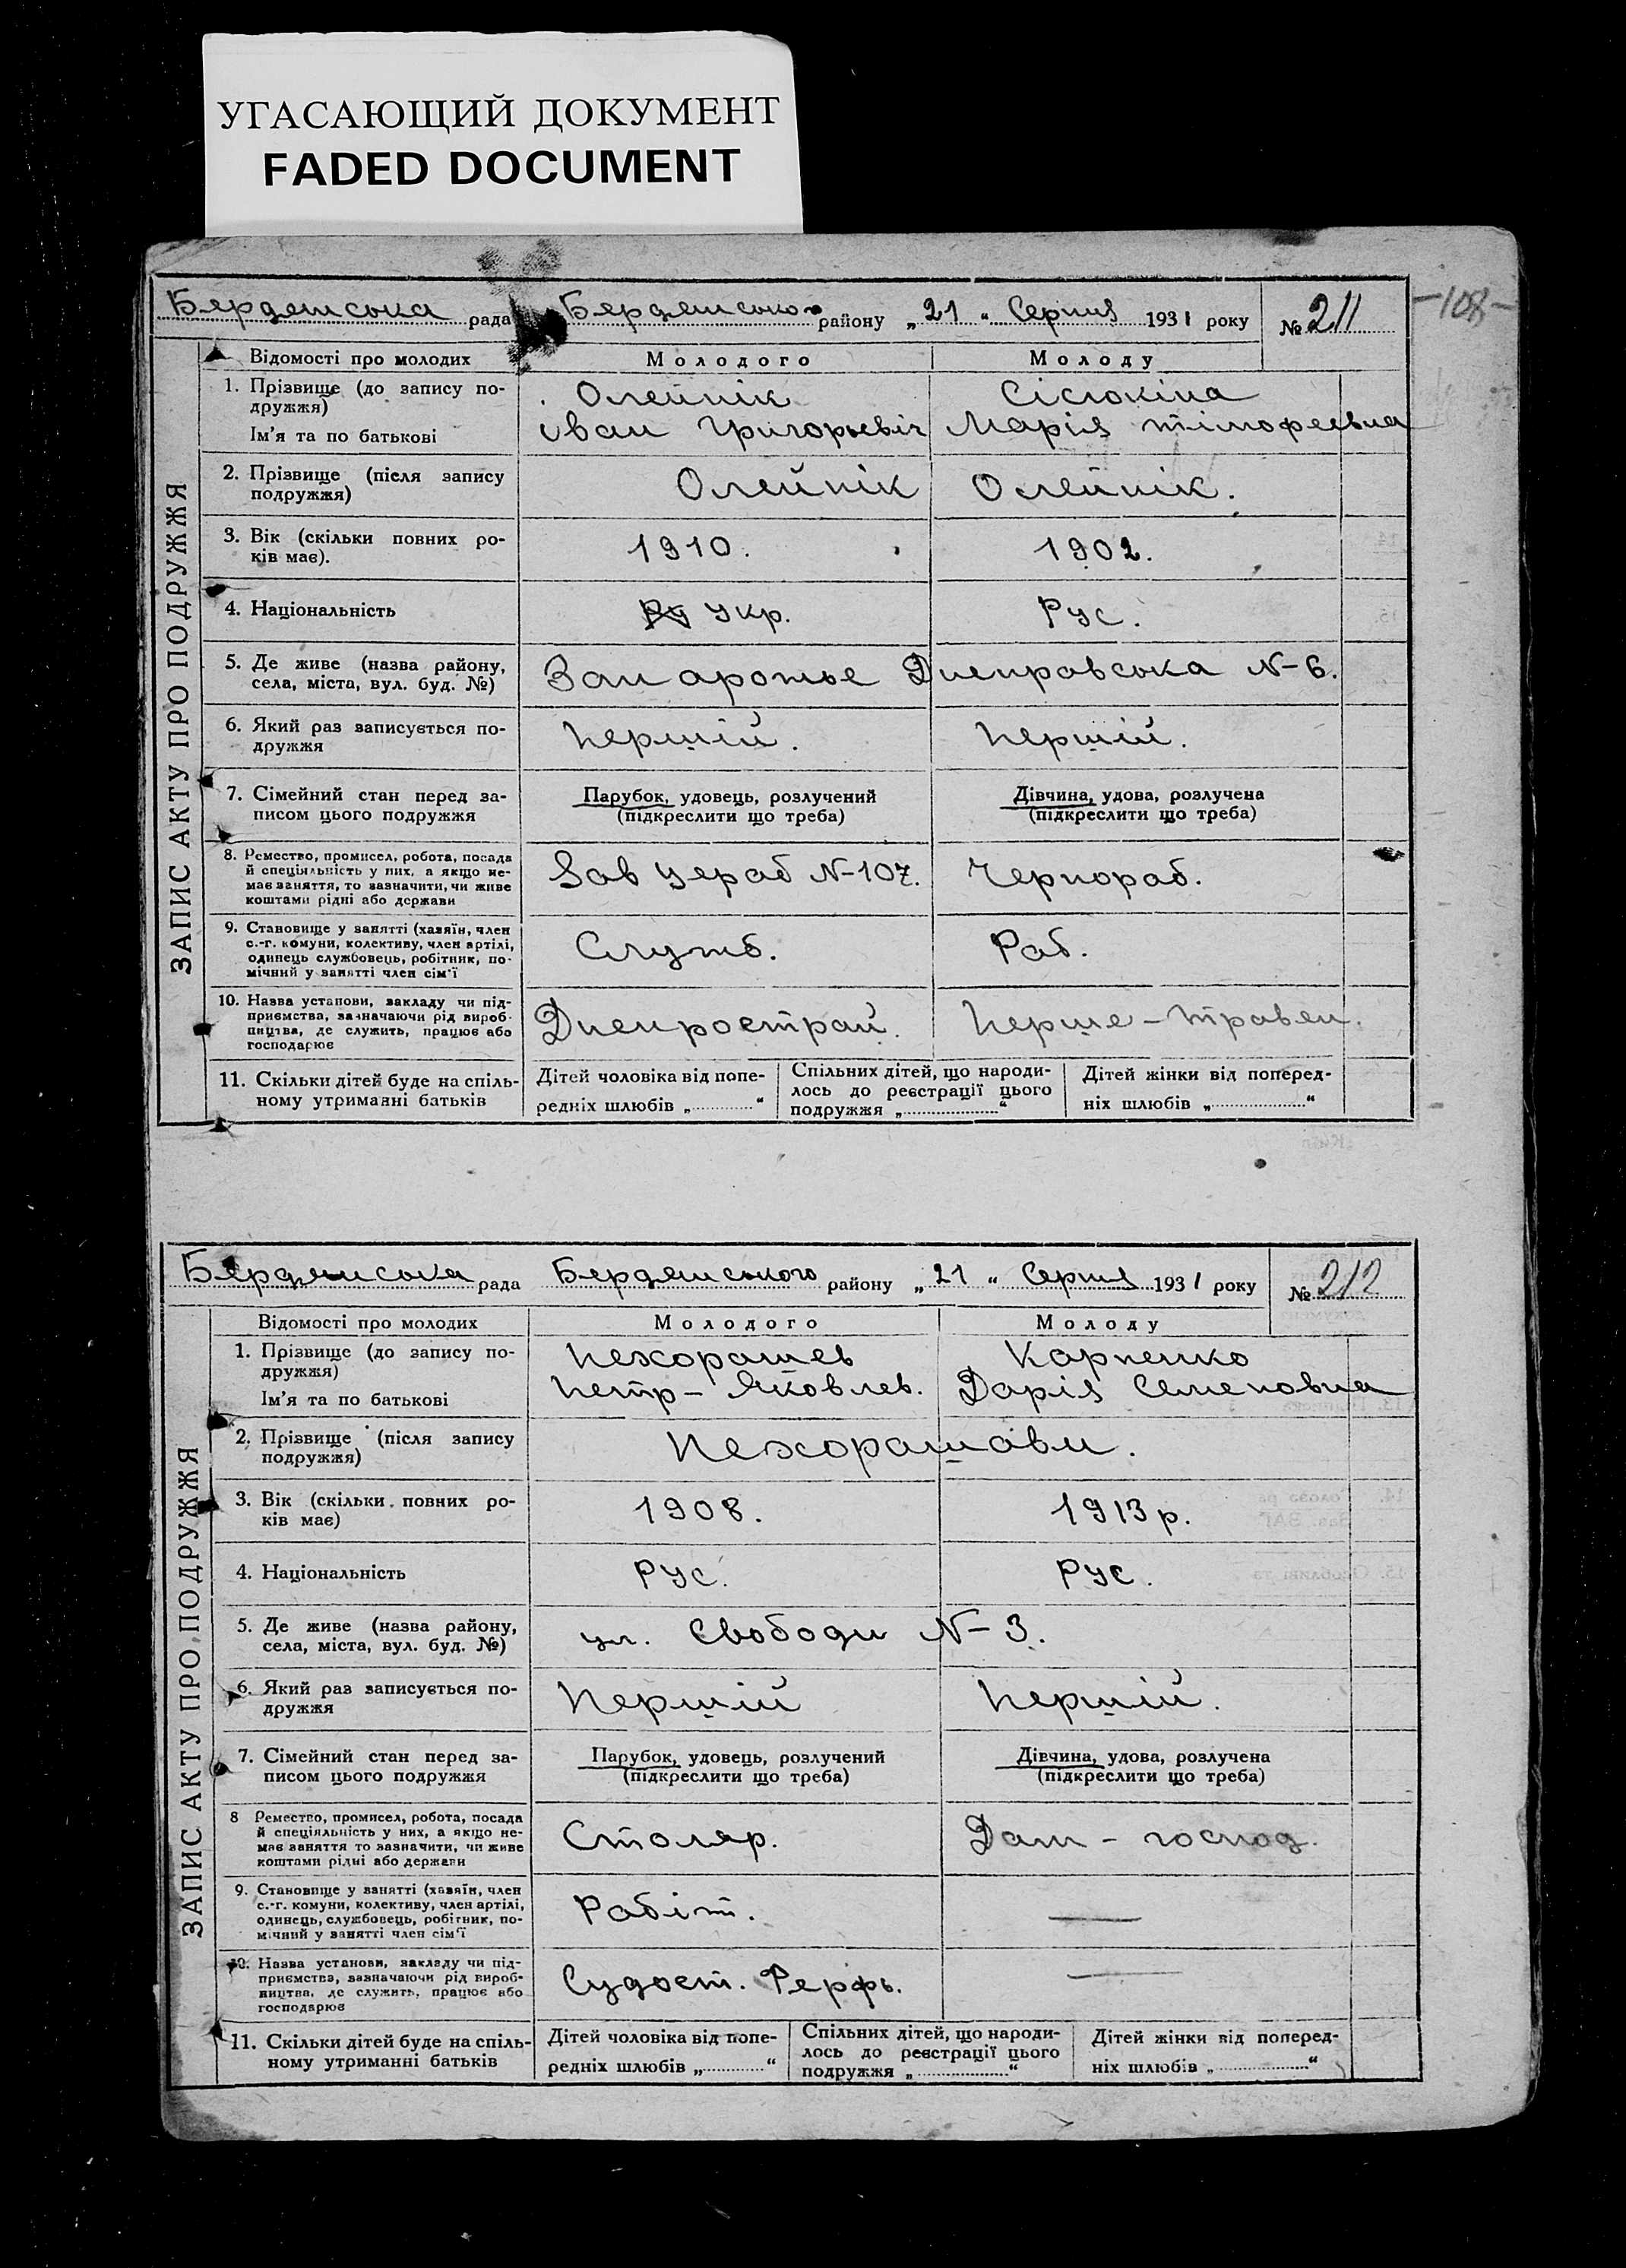 УГАСАЮЩИЙ ДОКУМЕНТ
FADED DOCUMENT
-108-
Бердянська рада Бердянського району „21“ Серпня 1931 року № 211
ЗАПИС АКТУ ПРО ПОДРУЖЖЯ
Відомості про молодих Молодого Молоду
1. Прізвище (до запису по- Олейнік Сісюкіна
дружжя)
Ім'я та по батькові Іван Григорьевіч Марія тімофеевна
2. Прізвище (після запису Олейнік Олейнік.
подружжя)
3. Вік (скільки повних ро- 1910. 1902.
ків має).
4. Національність Ру Укр. Рус.
5. Де живе (назва району, Запарожье Днепровська N-6.
села, міста, вул. буд. №)
6. Який раз записується по- Першій. Першій.
дружжя
7. Сімейний стан перед за- Парубок, удовець, розлучений Дівчина, удова, розлучена
писом цього подружжя (підкреслити що треба) (підкреслити що треба)
8. Ремество, промисел, робота, посада
й спеціяльність у них, а якщо не- Зав N-107. Чернораб.
має заняття, то зазначити, чи живе
коштами рідні або держави
9. Становище у занятті (хазяїн, член
с.-г. комуни, колективу, член артілі, Служб. Раб.
одинець службовець, робітник, по-
мічний у занятті член сім'ї
10. Назва установи, закладу чи під-
приємства, зазначаючи рід вироб- Днепрострай. Перше-травен.
ництва, де служить, працює або
господарює
11. Скільки дітей буде на спіль- Дітей чоловіка від попе- Спільних дітей, що народи- Дітей жінки від поперед-
ному утриманні батьків редніх шлюбів „ “ лось до реєстрації цього ніх шлюбів „ “
подружжя „ “
Бердянська рада Бердянського району „21“ Серпня 1931 року № 212
ЗАПИС АКТУ ПРО ПОДРУЖЖЯ
Відомості про молодих Молодого Молоду
1. Прізвище (до запису по- Нехорашев Карпенко
дружжя)
Ім'я та по батькові Петр- Яковлев. Дарія Семеновна
2. Прізвище (після запису Нехорашови.
подружжя)
3. Вік (скільки повних ро- 1908. 1913р.
ків має)
4. Національність Рус. Рус.
5. Де живе (назва району, ул. Свободи N-3.
села, міста, вул. буд. №)
6. Який раз записується по- Першій Першій.
дружжя
7. Сімейний стан перед за- Парубок, удовець, розлучений Дівчина, удова, розлучена
писом цього подружжя (підкреслити що треба) (підкреслити що треба)
8 Ремество, промисел, робота, посада
й спеціяльність у них, а якщо не- Столяр. Дат - господ.
має заняття то зазначити, чи живе
коштами рідні або держави
9. Становище у занятті (хазяїн, член
с.-г. комуни, колективу, член артілі, Рабіт. —
одинець, службовець, робітник, по-
мічний у занятті член сім'ї
10. Назва установи, закладу чи під-
приємства, зазначаючи рід вироб- Судост. —
ництва, де служить, працює або
господарює
11. Скільки дітей буде на спіль- Дітей чоловіка від попе- Спільних дітей, що народи- Дітей жінки від поперед-
ному утриманні батьків редніх шлюбів „ “ лось до реєстрації цього ніх шлюбів „ “
подружжя „ “